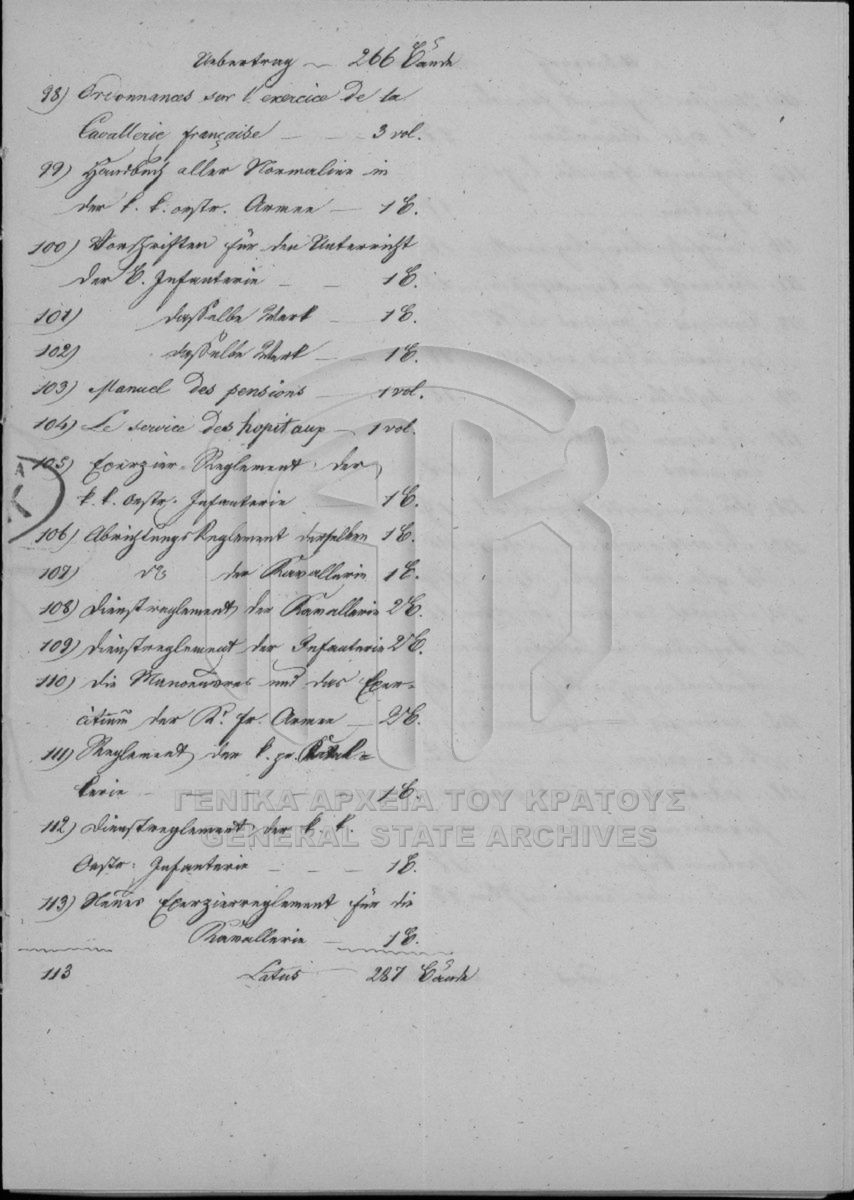 Uebertrag — 266 Bände
98) Ordonnances sur l'exercice de la
Cavallerie française — — 3 vol.
99) Handbuch aller Normalien in
der k. k. oestr. Armee — 1 B.
100) Vorschriften für den Unterricht
der B. Infanterie — — 1 B.
101) dasselbe Werk — 1 B.
102) dasselbe Werk — 1 B.
103) Manuel des pensions — 1 vol.
104) Le service des hopitaux — 1 vol.
105) Exerzier-Reglement der
k. k. Oestr. Infanterie 1 B.
106) Abrichtungs Reglement derselben 1 B.
107) do der Kavallerie 1 B.
108) Dienstreglement der Kavallerie 2 B.
109) Dienstreglement der Infanterie 2 B.
110) Die Manoeuvres und das Exer-
citium der K. fr. Armee — 2 B.
111) Reglement der k. pr. Kaval-
lerie — — — 1 B.
112) Dienstreglement der k. k.
Oestr. Infanterie — — — 1 B.
113) Neues Exerzierreglement für die
Kavallerie — 1 B.
113 Latus — 287 Bände
ΓΕΝΙΚΑ ΑΡΧΕΙΑ ΤΟΥ ΚΡΑΤΟΥΣ
GENERAL STATE ARCHIVES